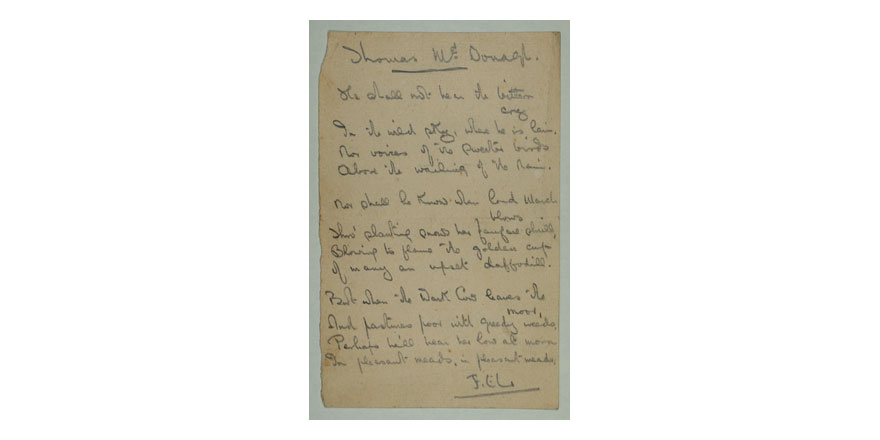 Thomas McDonagh.
He shall not hear the bittern
cry
In the wild sky, where he is lain,
Nor voices of the sweeter birds
Above the wailing of the rain.
Nor shall he know when loud March
blows
Thro' slanting snows her fanfare shrill,
Blowing to flame the golden cup
Of many an upset daffodill.
But when the Dark Cow leaves the
moor,
And pastures poor with greedy weeds,
Perhaps he'll hear her low at morn
In pleasant meads, in pleasant meads.